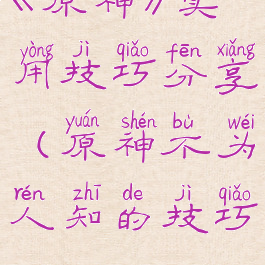 《原神》实
yòng jì qiǎo fēn xiǎng
用技巧分享
yuán shén bù wéi
（原神不为
rén zhī de jì qiǎo
人知的技巧